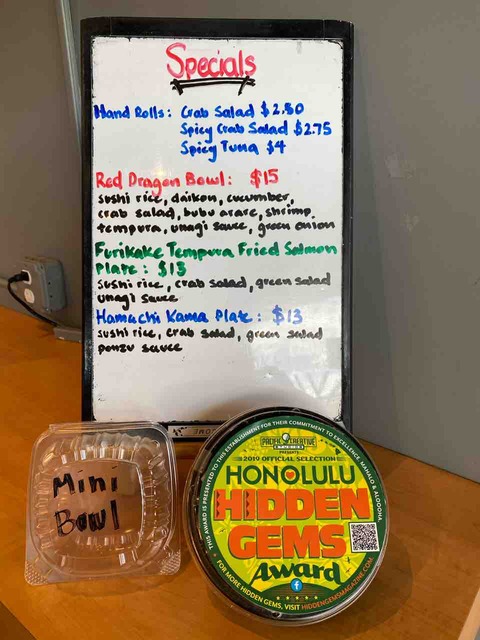 Specials
Hand Rolls: Crab Salad $2.50
Spicy Crab Salad $2.75
Spicy Tuna $4
Red Dragon Bowl: $15
sushi rice, daikon, cucumber,
crab salad, bubu arare, shrimp
tempura, unagi sauce, green onion
Furikake Tempura Fried Salmon
Plate: $13
sushi rice, crab salad, green salad
unagi sauce
Hamachi Kama Plate: $13
sushi rice, crab salad, green salad
ponzu sauce
Mini
Bowl
THIS AWARD IS PRESENTED TO THIS ESTABLISHMENT FOR THEIR COMMITMENT TO EXCELLENCE, MAHALO & ALOOOHA
PACIFIC CREATIVE
PRESENTS
2019 OFFICIAL SELECTION
HONOLULU
HIDDEN
GEMS
Award
f
FOR MORE HIDDEN GEMS, VISIT HIDDENGEMSMAGAZINE.COM